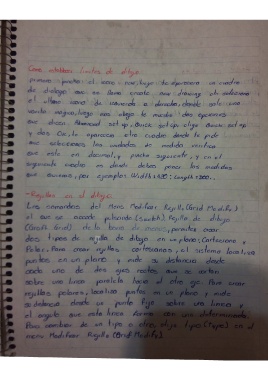 Como establecer Límites de dibujo
primero pucho el menu new, luego te aparecera un cuadro
de dialogo que se llama create new drawing ahi selecciono
el ultimo icono de izquierda a derecha, donde sale una
varita magica, luego mas abajo te muestra dos opciones
que dicen Advanced set up, Quick set up, elijo Quick set up
y doy OK, te aparecera otro cuadro donde te pide
que selecciones las unidades de medida verifica
que este en decimal, y pucho siguiente, y en el
siguiente cuadro es donde debes poner las medidas
que quieres, por ejemplo: Width: 420; Length: 200.
- Rejillas en el dibujo.
Los comandos del Menu Modificar Rejilla (Grid Modify)
el que se accede pulsando (Switch) Rejilla de dibujo
(Grid) de la linea de menus, permiten crear
dos tipos de rejilla de dibujo en un plano; Cartesiano y
Polar. Para crear rejillas cartesianas, el sistema localiza
puntos en un plano y mide su distancia desde
cada uno de dos ejes rectos que se cortan
sobre una linea paralela hacia el otro eje. Para crear
rejillas polares, localiza puntos en un plano y mide
su distancia desde un punto fijo sobre una linea y
el angulo que esta linea forma con una determinada.
Para cambiar de un tipo a otro, elija tipo (Type) en el
menu Modificar Rejilla (Grid Modify).